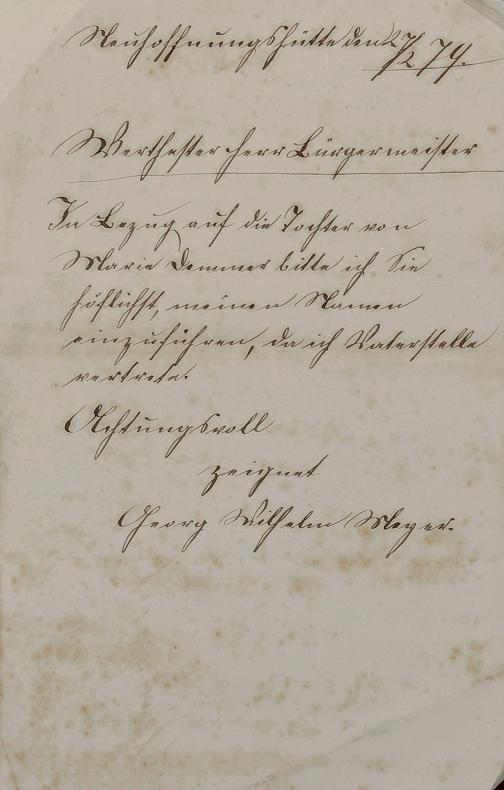 Neuhoffnungshütte den 27/2 79.
Werthester Herr Bürgermeister
In Bezug auf die Tochter von
Marie Demmer bitte ich Sie
höflichst, meinen Namen
einzuführen, da ich Vaterstelle
vertrete.
Achtungsvoll
zeignet
Georg Wilhelm Meyer.